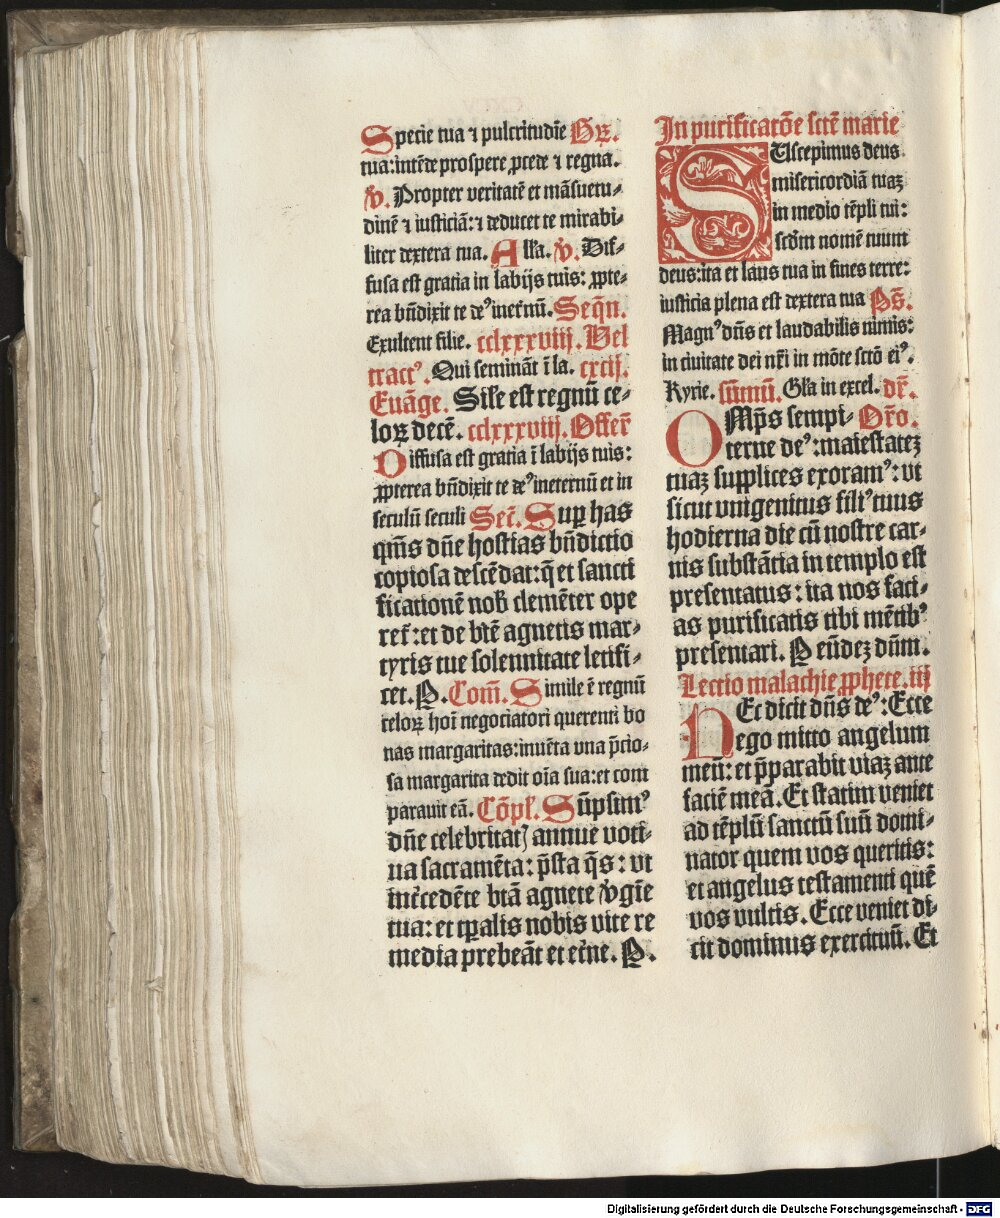 Specie tua ⁊ pulcritudīe Gꝝ.
tua: intēde prospere ꝓcede ⁊ regna.
v̄. Propter veritatē et māsuetu⸗
dinē ⁊ iusticiā: ⁊ deducet te mirabi⸗
liter dextera tua. Alľa. v̄. Dif⸗
fusa est gratia in labijs tuis: ꝓpte⸗
rea bn̄dixit te deꝰ ineťnū. Seqn̄.
Exultent filie. cclxxxviij. Vel
tractꝰ. Qui semināt ī la. cxcij.
Euāge. Siľe est regnū ce⸗
loꝝ decē. cclxxxviij. Offerť
Diffusa est gratia ī labijs tuis:
ꝓpterea bn̄dixit te deꝰ ineternū et in
seculū seculi Secť. Suꝑ has
qm̄s dn̄e hostias bn̄dictio
copiosa descēdat: q̄ et sancti
ficationē nob̄ clemēter ope
reť: et de btē agnetis mar⸗
tyris tue solennitate letifi⸗
cet. P. Com̄. Simile ē regnū
celoꝝ hoī negociatori querenti bo
nas margaritas: inuēta vna p̄cio⸗
sa margarita dedit oīa sua: et com
parauit eā. Cōpľ. Sūpsimꝰ
dn̄e celebritatꝭ annue voti⸗
ua sacramēta: p̄sta q̄s: vt
int̄cedēte btā agnete v̄gīe
tua: et tꝑalis nobis vite re
media prebeāt et et̄ne. P.
In purificatōe sctē marie
SUscepimus deus
misericordiā tuaꝫ
in medio tēpli tui:
scďm nomē tuum
deus: ita et laus tua in fines terre:
iusticia plena est dextera tua Ps̄.
Magnꝰ dn̄s et laudabilis nimis:
in ciuitate dei nr̄i in mōte sctō eiꝰ.
Kyrie. sūmū. Gľa in excel. dr̄.
OMp̄s sempi⸗ Or̄o.
terne deꝰ: maiestateꝫ
tuaꝫ supplices exoramꝰ: vt
sicut vnigenitus filiꝰ tuus
hodierna die cū nostre car⸗
nis substātia in templo est
presentatus: ita nos faci⸗
as purificatis tibi mētibꝰ
presentari. P eūdeꝫ dn̄m.
Lectio malachie ꝓphete. iij
HEc dicit dn̄s deꝰ: Ecce
ego mitto angelum
meū: et p̄parabit viaꝫ ante
faciē meā. Et statim veniet
ad tēplū sanctū suū domi⸗
nator quem vos queritis:
et angelus testamenti quē
vos vultis. Ecce veniet di⸗
cit dominus exercituū. Et
Digitalisierung gefördert durch die Deutsche Forschungsgemeinschaft - DFG